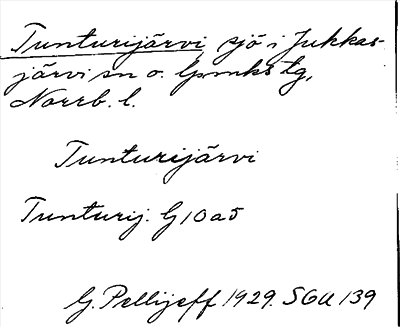 Tunturijärvi, sjö i Jukkas-
järvi sn o. lpmks tg,
Norrb. l.
Tunturijärvi
Tunturij. G10a5
G. Pellijeff 1929. SGU 139